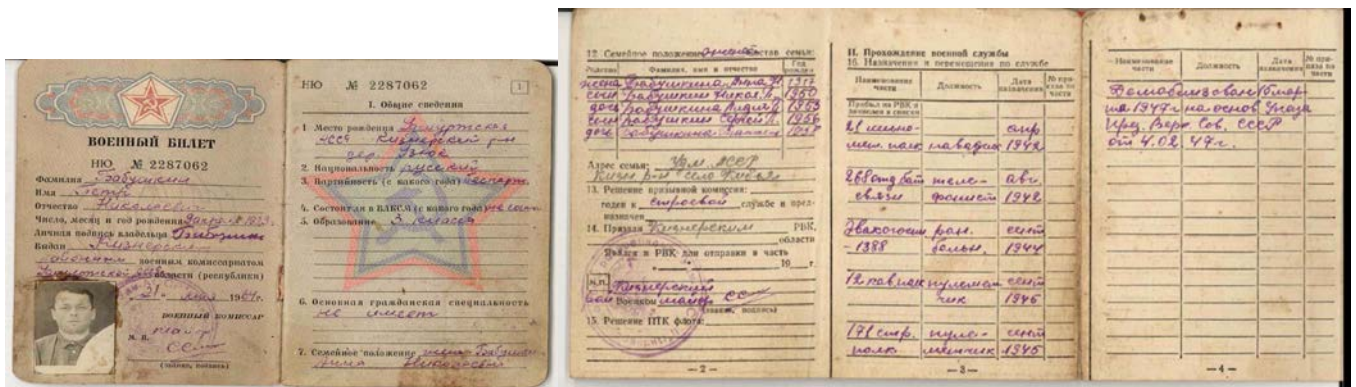 ВОЕННЫЙ БИЛЕТ
НЮ № 2287062
Фамилия Бабушкин
Имя Петр
Отчество Николаевич
Число, месяц и год рождения 1923
Личная подпись владельца
Выдан Кизнерским
районным военным комиссариатом
Удмуртской области (республики)
31 мая 196 г.
ВОЕННЫЙ КОМИССАР
М. П. майор
(звание, подпись)
НЮ № 2287062
1
I. Общие сведения
1. Место рождения Удмуртская
АССР Кизнерский р-н
дер.
2. Национальность русский
3. Партийность (с какого года) беспарт.
4. Состоял ли в ВЛКСМ (с какого года)
5. Образование 3 класса
6. Основная гражданская специальность
не имеет
7. Семейное положение жена Бабушкина
12. Семейное положение состав семьи:
Родство Фамилия, имя и отчество Год рождения
жена Бабушкина 1917
сын Бабушкин Никол. 1950
дочь Бабушкина Лидия 1953
сын Бабушкин Сергей 1956
дочь Бабушкина 1958
Адрес семьи: Удм. АССР
Кизн. р-н село
13. Решение призывной комиссии:
годен к строевой службе и пред-
назначен
14. Призван Кизнерским РВК,
области
Явился в РВК для отправки в часть
" " 19 г.
М.П. Кизнерский
Военком майор
(звание, подпись)
15. Решение ПТК флота:
— 2 —
II. Прохождение военной службы
16. Назначения и перемещения по службе
Наименование части Должность Дата назначения № приказа по части
Прибыл на РВК и зачислен в списки
21 мино-
мет. полк наводчик апр 1942
268 отд бат. связи телефонист авг. 1942
Эвакогоспи - 1388 ран. больн. сент 1944
12 зап. полк пулеметчик сент 1945
171 стр. полк пулеметчик сент 1945
— 3 —
Наименование части Должность Дата назначения № приказа по части
Демобилизован 15 мар-
та 1947 г на основ. Указа
През. Верх. Сов. СССР
от 4.02.47 г.
— 4 —